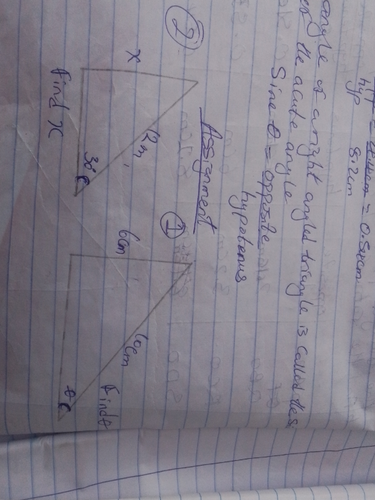 hyp 8.2cm
angle of a right angled triangle is called the
the acute angle
Sine θ = opposite
hypotenus
Assignment
① 6cm 10cm Find θ
θ
② x 12m
30°
Find x